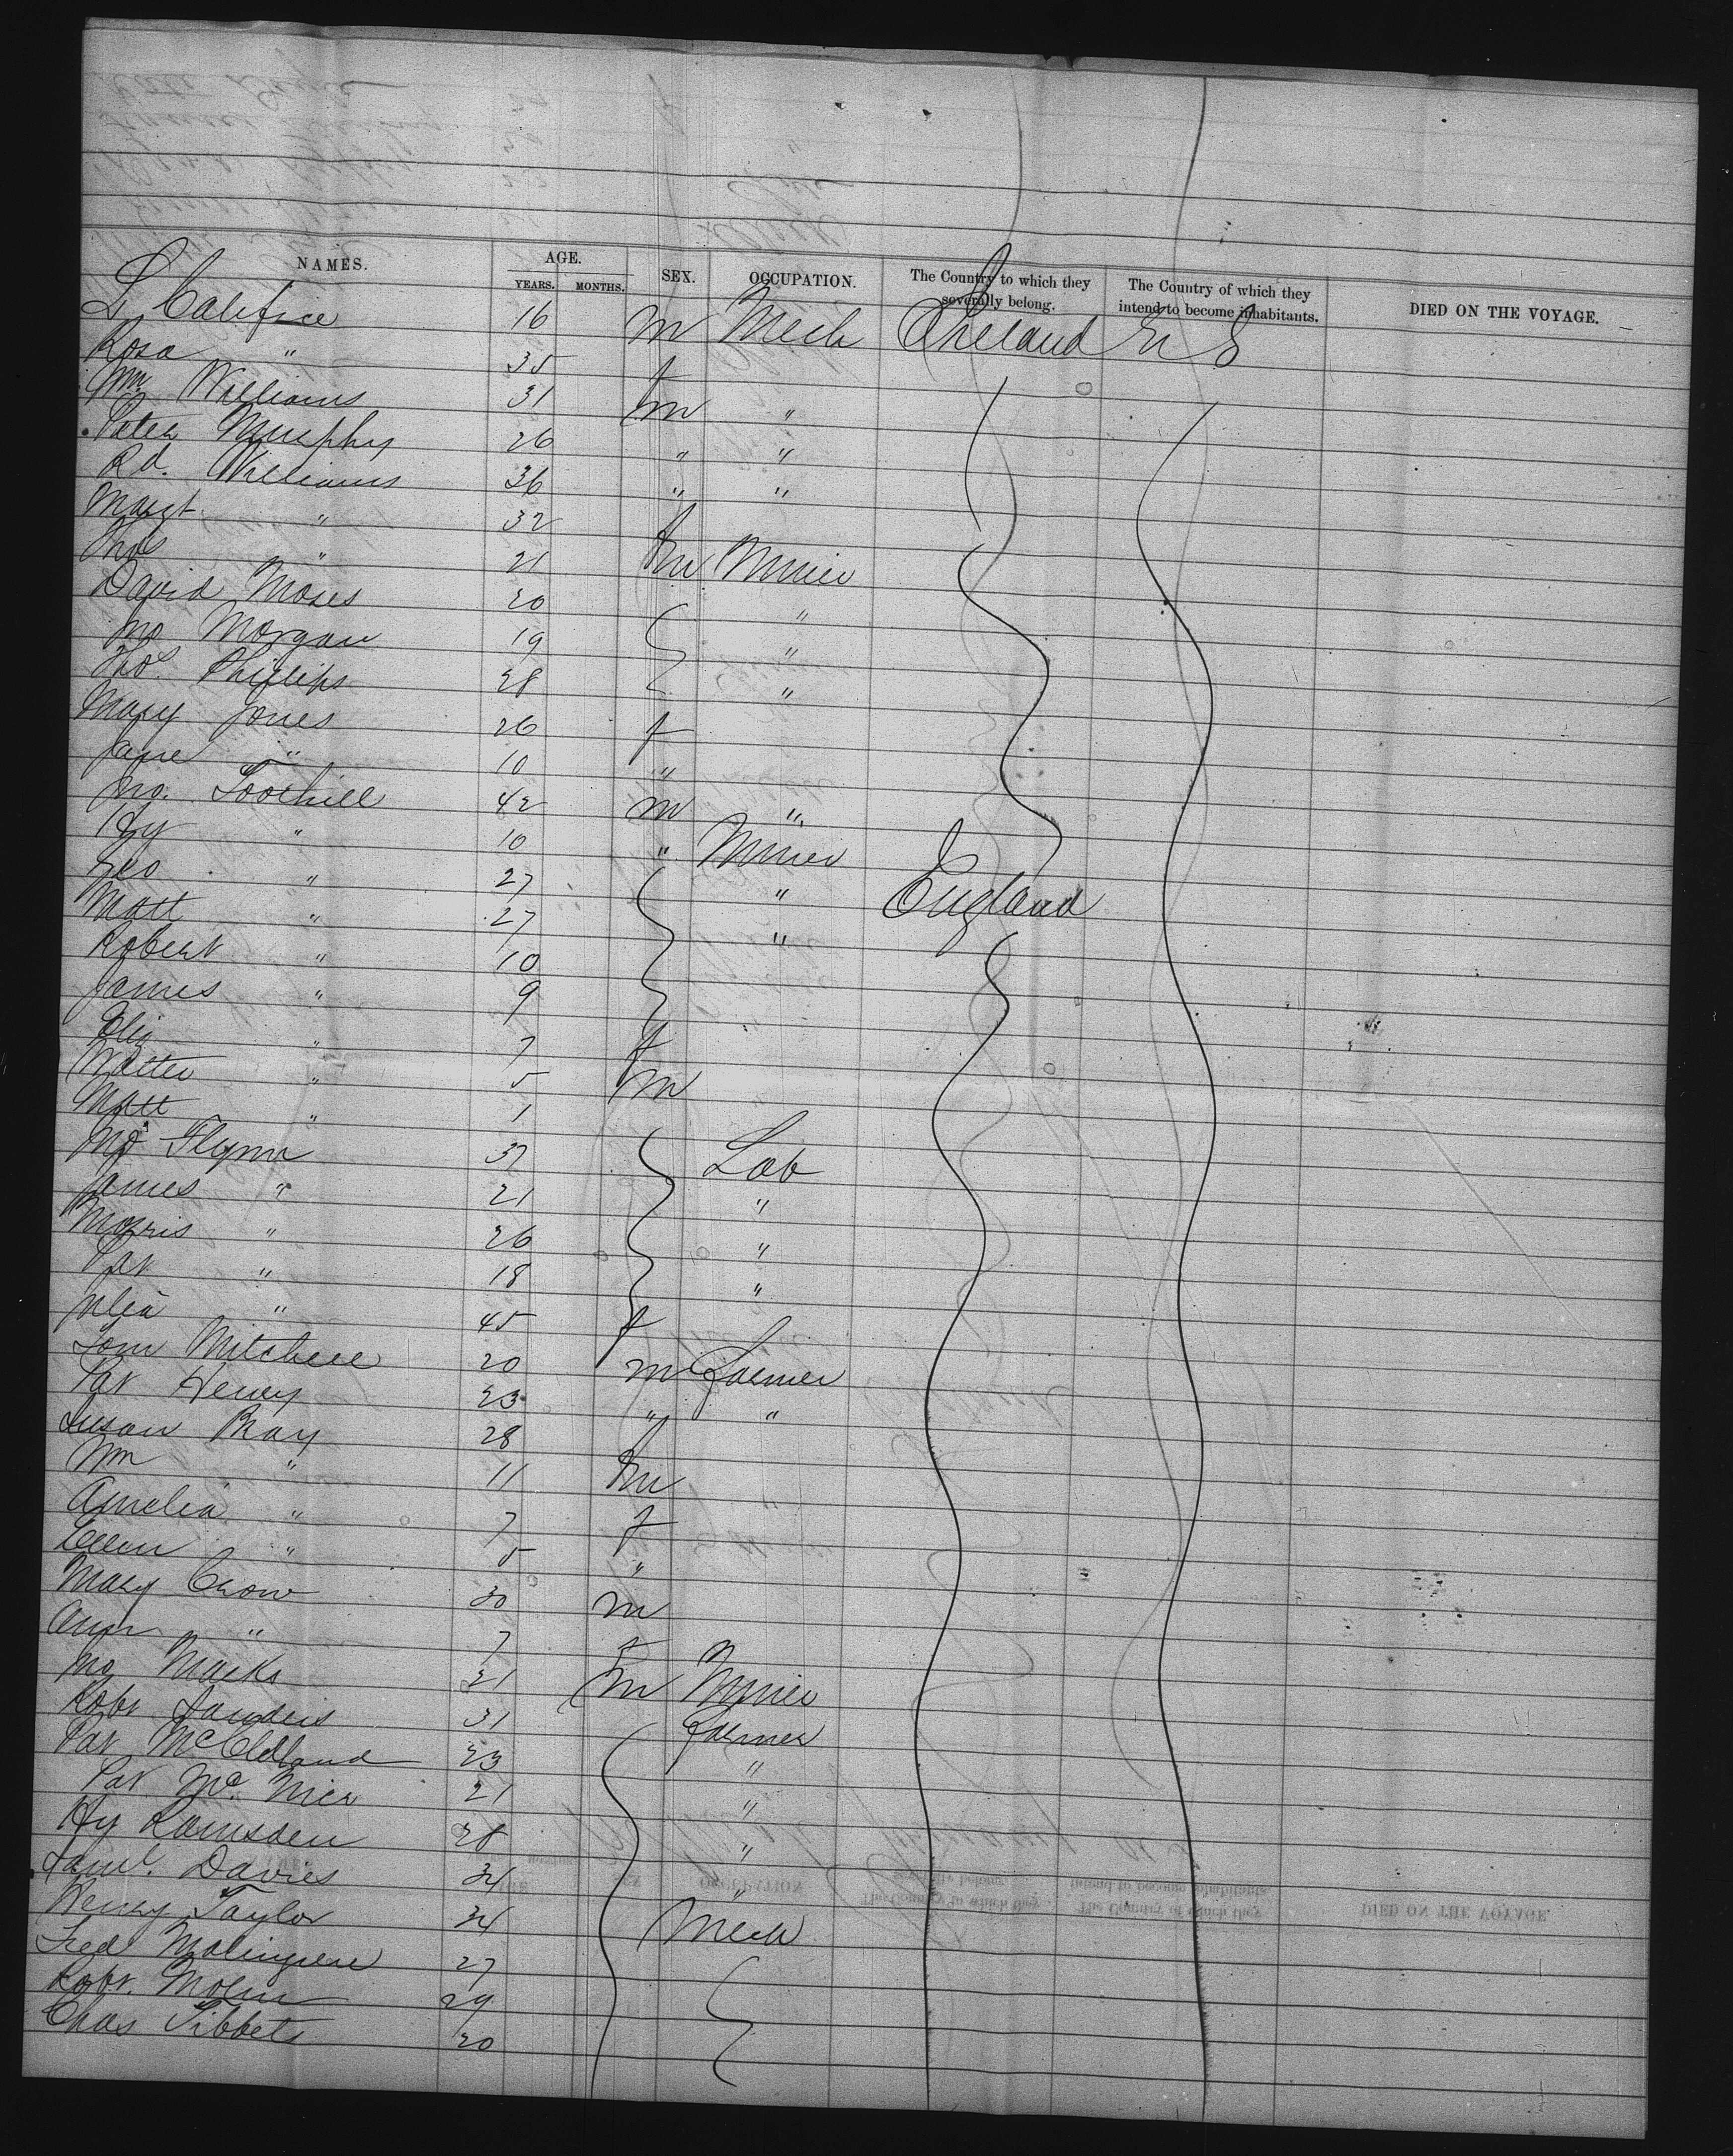 NAMES. AGE. YEARS. MONTHS. SEX. OCCUPATION. The Country to which they severally belong. The Country of which they intend to become inhabitants. DIED ON THE VOYAGE.
L Calefice 16 m Mech Ireland U S
Rosa " 35 f
Wm Williams 31 m "
Peter Murphy 26 " "
Rd. Williams 36 " "
Margt " 32 f
Thos " 21 m Miner
David Moses 20 "
Jno Morgan 19 "
Thos. Phillips 28 "
Mary Jones 26 f
Jane " 10 "
Jno. Toothill 42 m "
Hy " 10 " Miner
Geo " 27 " England
Matt " 27 "
Robert " 10
James " 9
Eliz " 7 f
Walter " 5 m
Matt " 1
Jno Flynn 37 Lab
James " 21 "
Morris " 26 "
Pat " 18 "
Julia " 45 f
Tom Mitchell 20 m Farmer
Pat Henry 23 " "
Susan Bray 28 f
Wm " 11 m
Amelia " 7 f
Ellen " 5 "
Mary Crow 30 m
Ann " 7 f
Jno Marks 21 m Miner
Robt Sanders 31 Farmer
Pat McClelland 23 "
Pat Mc. Nier 21 "
Hy Ramsden 28 "
Saml. Davies 34 "
Henry Taylor 34 Mech
Fred 27
Robt. 29
Chas Tibbets 20